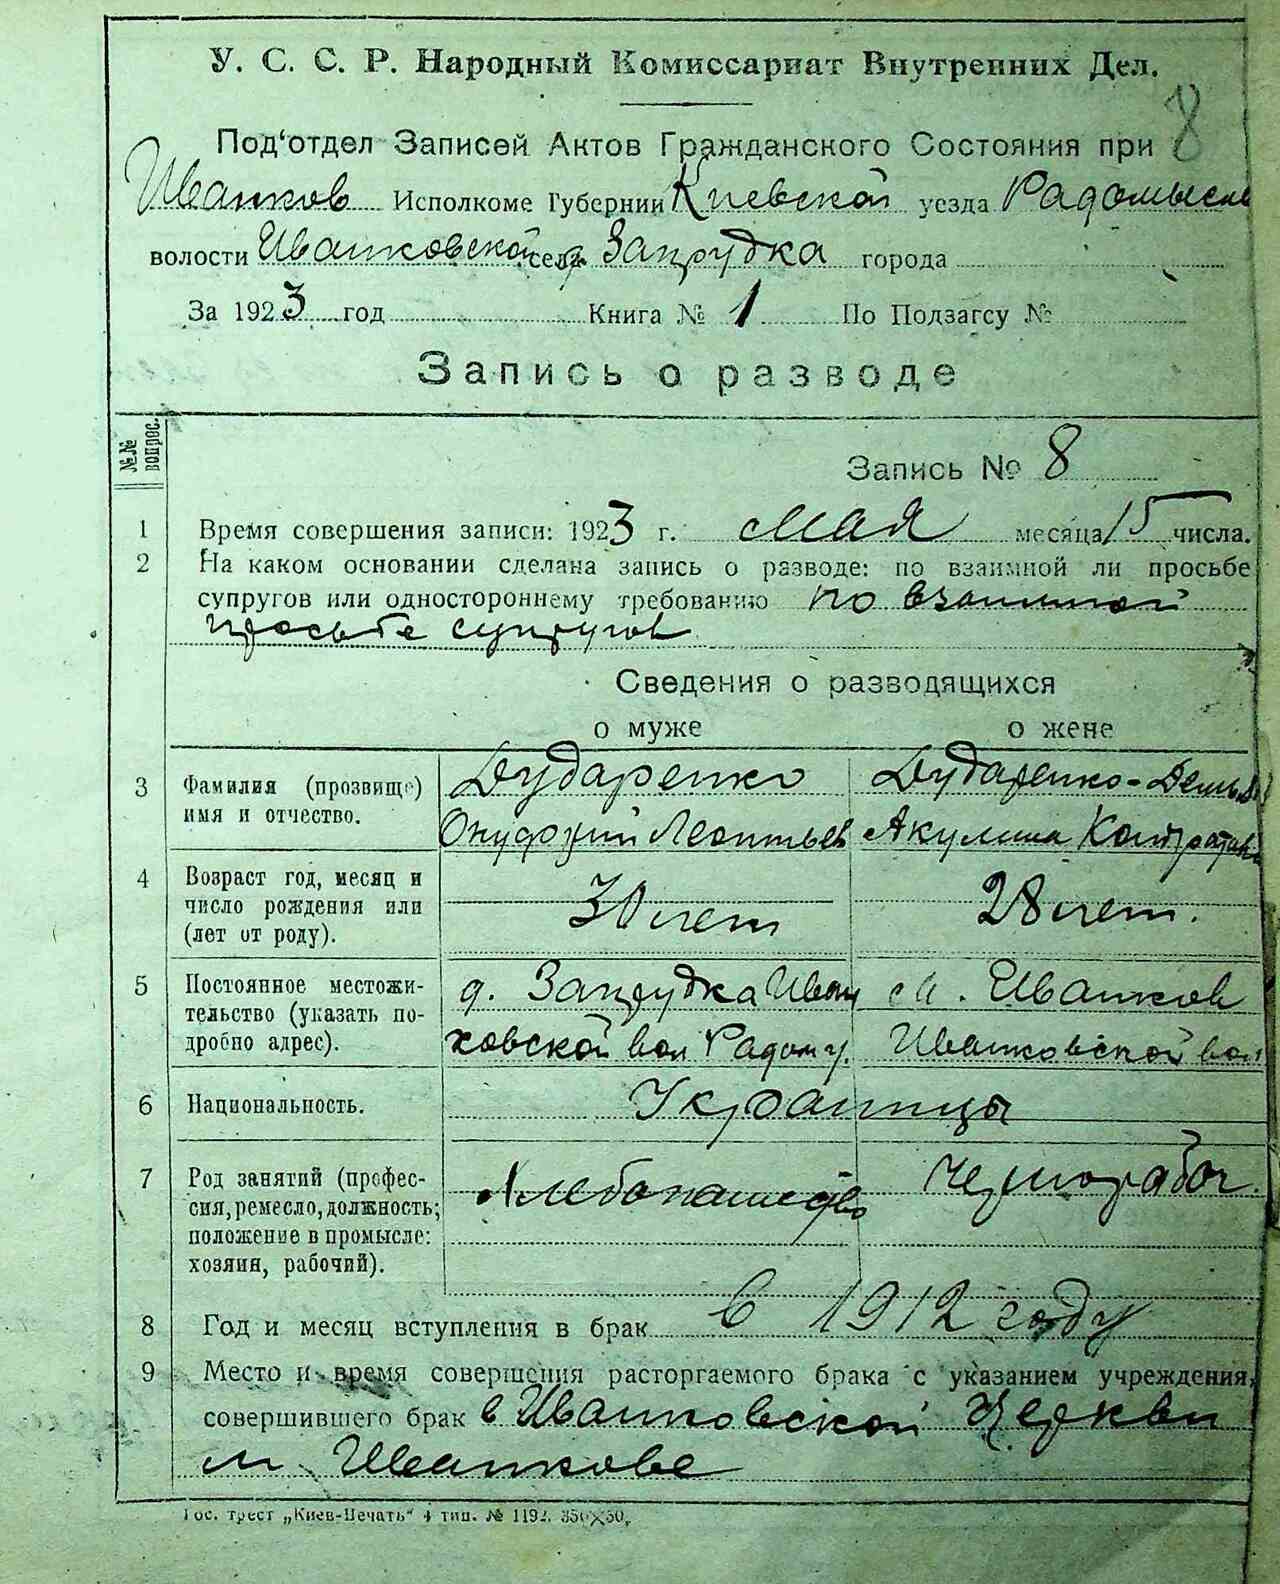 У. С. С. Р. Народный Комиссариат Внутренних Дел.
8
Под‘отдел Записей Актов Гражданского Состояния при
Иванков Исполкоме Губернии Киевской уезда Радомысль
волости Иванковской села д. Запрудка города
За 1923 год Книга № 1 По Подзагсу №
Запись о разводе
№№ вопрос.
Запись № 8
1 Время совершения записи: 1923 г. мая месяца 15 числа.
2 На каком основании сделана запись о разводе: по взаимной ли просьбе
супругов или одностороннему требованию по взаимной
просьбе супругов
Сведения о разводящихся
о муже о жене
3 Фамилия (прозвище) Дударенко Дударенко-
имя и отчество. Онуфрий Леонтьев Акулина
4 Возраст год, месяц и
число рождения или 30 лет 28 лет.
(лет от роду).
5 Постоянное местожи- д. Запрудка Иван м. Иванков
тельство (указать по- ковской вол Радом у. Иванковской вол
дробно адрес).
6 Национальность. Украинцы
7 Род занятий (профес- Хлебопашество Чернорабоч.
сия, ремесло, должность;
положение в промысле:
хозяин, рабочий).
8 Год и месяц вступления в брак в 1912 году
9 Место и время совершения расторгаемого брака с указанием учреждения,
совершившего брак в Иванковской Церкви
м Иванкове
Гос. трест „Киев-Печать“ 4 тип. № 1192. 350×50.